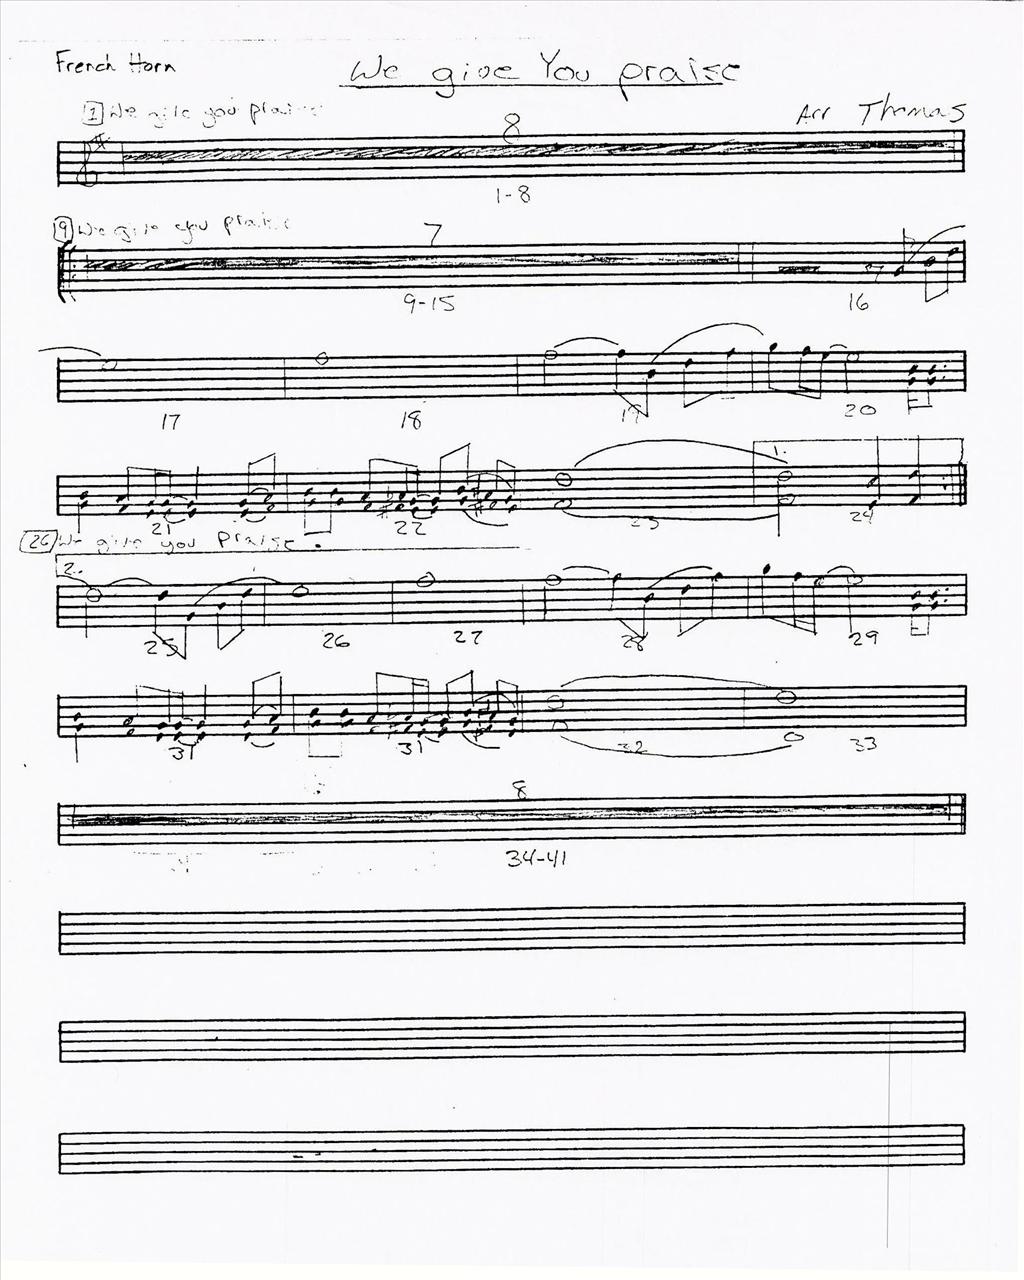 French Horn
We give You praise
Arr Thomas
1 We give you praise
8
1-8
9 We give you praise
7
9-15
16
17
18
19
20
1.
21
22
23
24
26 We give you praise.
2.
25
26
27
28
29
31
31
32
33
8
34-41